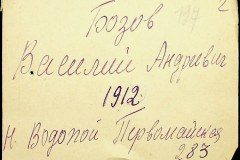 Бозов
Василий Андреевич
1912
Н. Водопой Первомайская
283